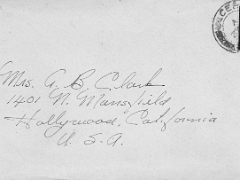 Mrs. A. B. Clark
1401 N. Mansfield,
Hollywood, California
U. S. A.